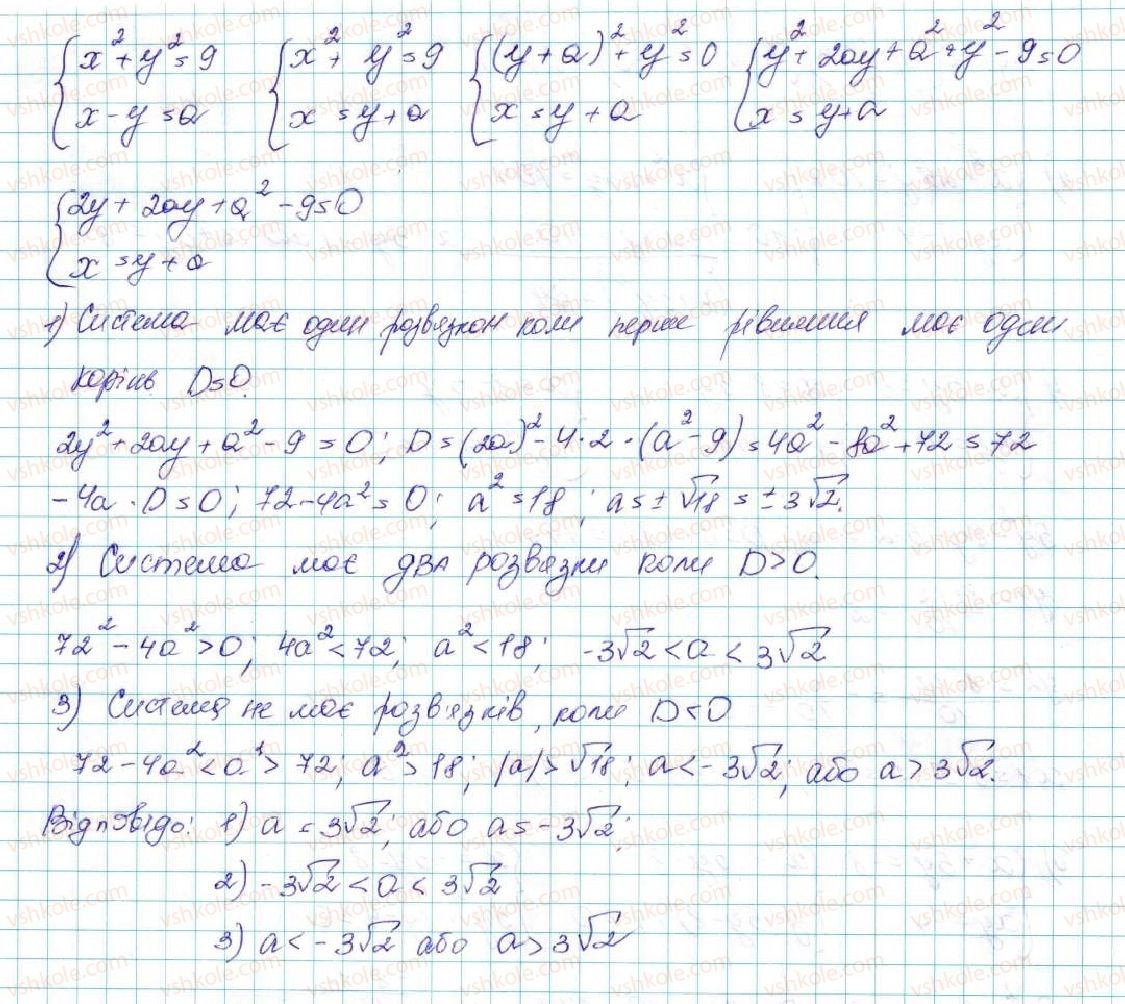 { x² + y² = 9 { x² + y² = 9 { (y + a)² + y² = 0 { y² + 2ay + a² + y² - 9 = 0
x - y = a x = y + a x = y + a x = y + a
{ 2y + 2ay + a² - 9 = 0
x = y + a
1) Система має один розвязкок коли перше рівняння має один
корінь D = 0.
2y² + 2ay + a² - 9 = 0; D = (2a)² - 4 · 2 · (a² - 9) = 4a² - 8a² + 72 = 72
- 4a · D = 0; 72 - 4a² = 0; a² = 18; a = ± √18 = ± 3√2.
2) Система має два розвязки коли D > 0.
72² - 4a² > 0; 4a² < 72; a² < 18; -3√2 < a < 3√2
3) Система не має розв'язків, коли D < 0
72 - 4a² < a² > 72; a² > 18; |a| > √18; a < - 3√2; або a > 3√2.
Відповідь: 1) a = 3√2; або a = - 3√2;
2) - 3√2 < a < 3√2
3) a < - 3√2 або a > 3√2
vshkole.com